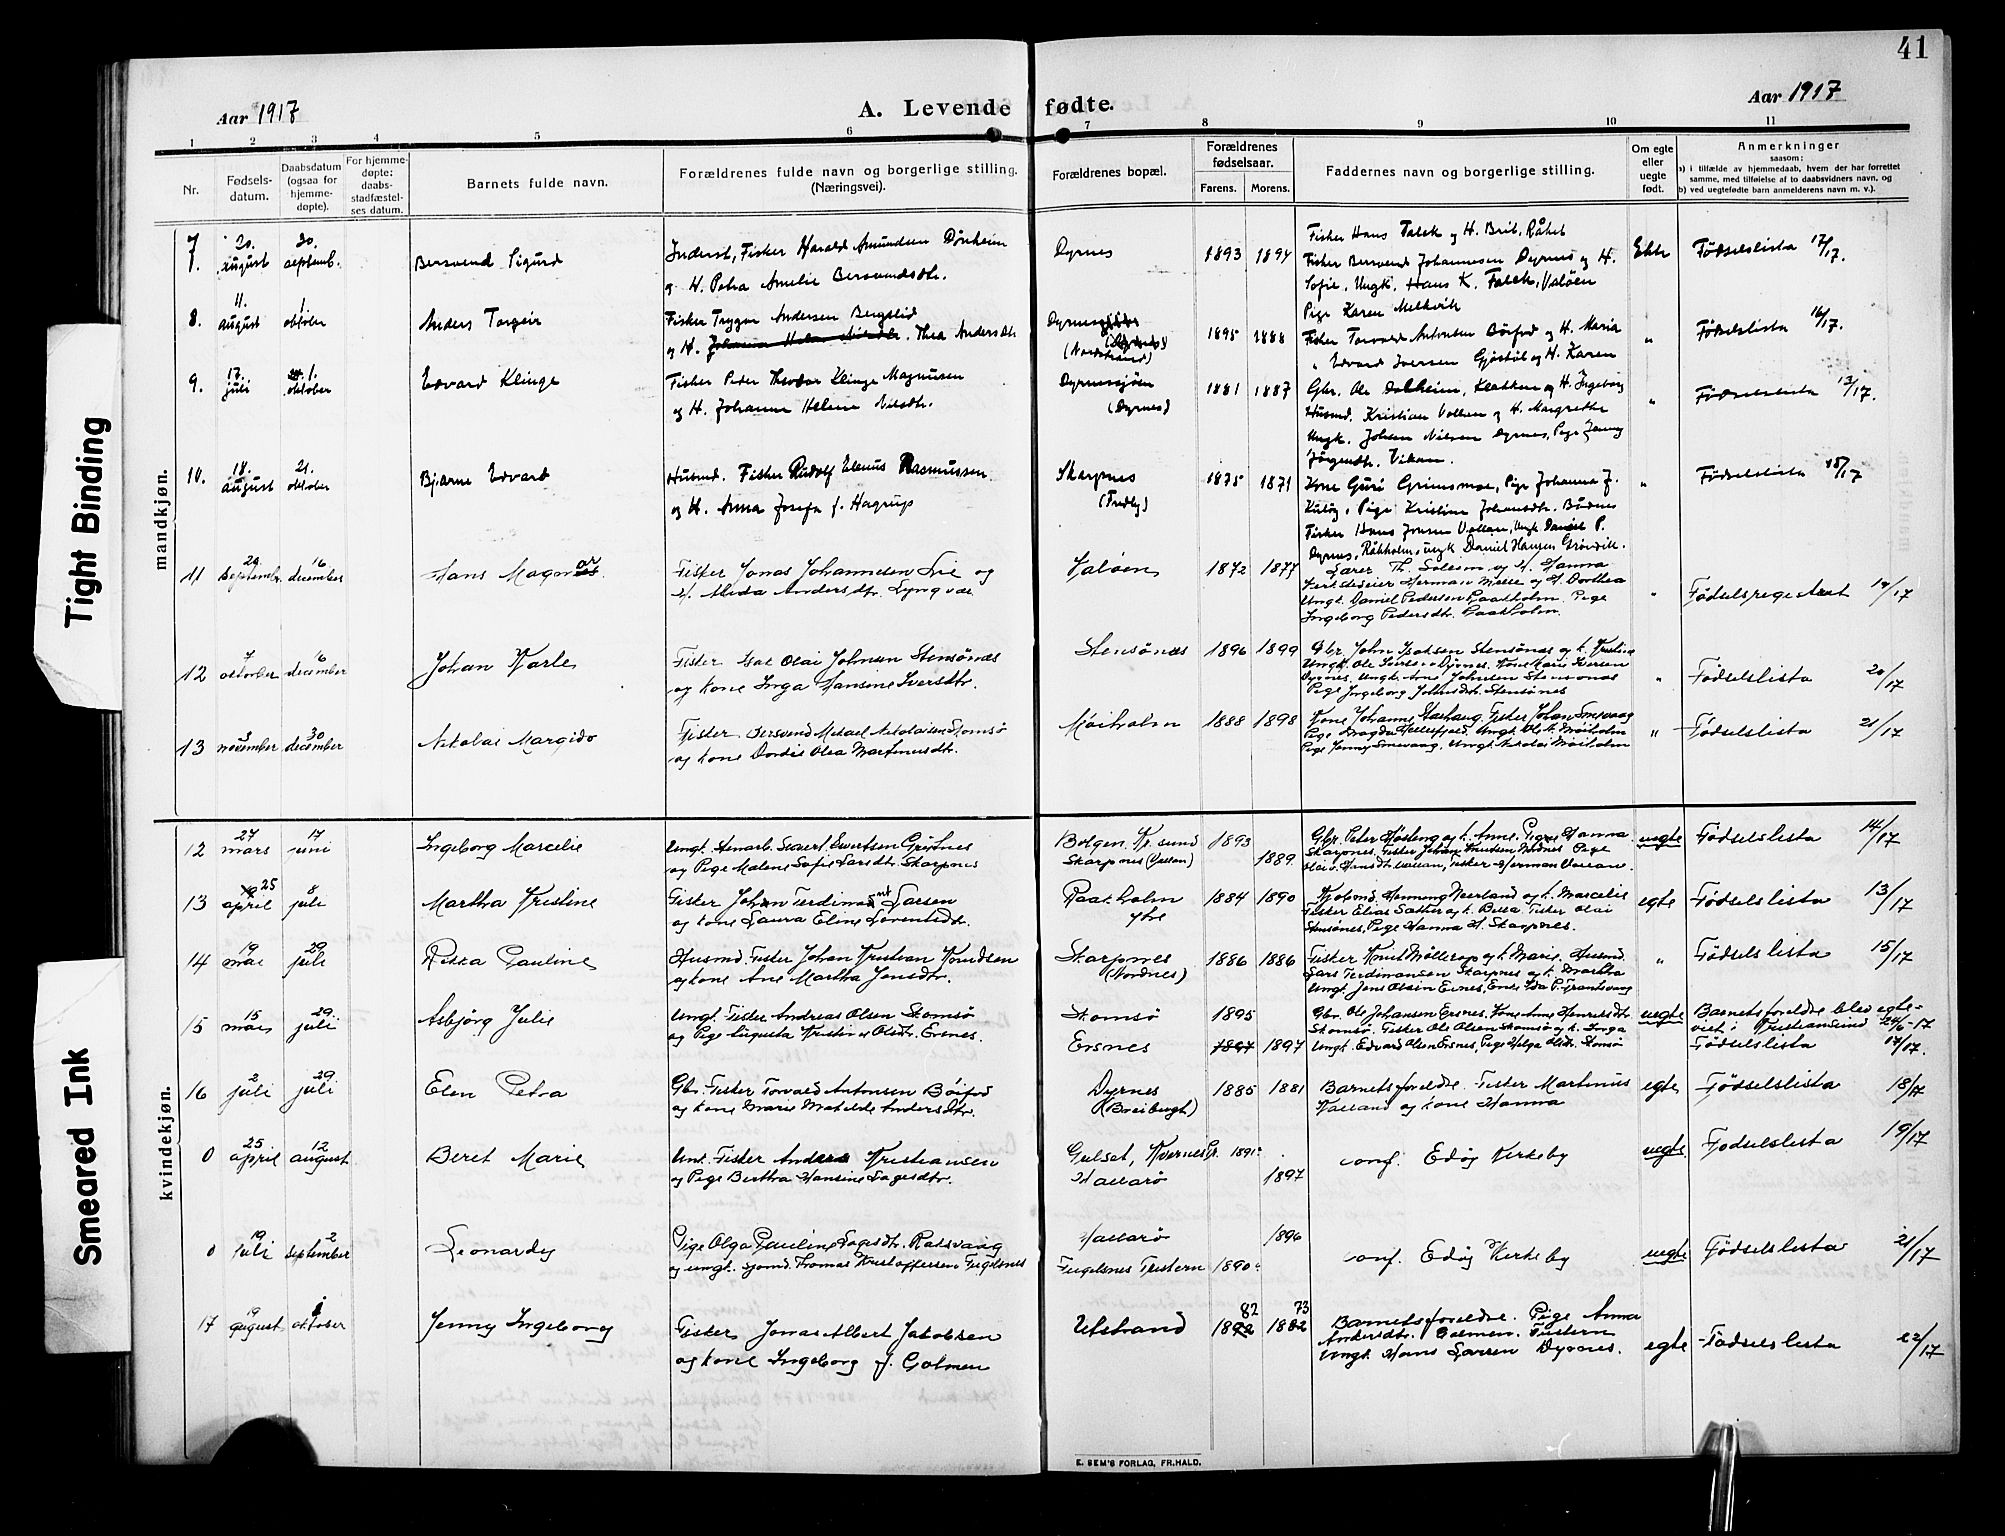 41
Aar 1917
A. Levende fødte.
Aar 1917
1 2 3 4 5 6 7 8 9 10 11
Nr.
Fødsels-
datum.
Daabsdatum
(ogsaa for
hjemme-
døpte).
For hjemme-
døpte:
daabs-
stadfæstel-
ses datum.
Barnets fulde navn.
Forældrenes fulde navn og borgerlige stilling.
(Næringsvei).
Forældrenes bopæl.
Forældrenes
fødselsaar.
Farens. Morens.
Faddernes navn og borgerlige stilling.
Om egte
eller
uegte
født.
Anmerkninger
saasom:
a) i tilfælde av hjemmedaab, hvem der har forrettet
samme, med tilføielse af to daabsvidners navn, og
b) ved uegtefødte barn anmelderens navn m. v.).
mandkjøn.
7. 20. august 30. septemb. Bersvend Sigurd
Inderst, Fisker Harald Amundsen Dønheim
og H. Petra Amelie Bersvendsdtr.
Dyrnes 1893 1894
Fisker Hans Falek og H. Brit, Råket
Fisker Bersvend Johannesen Dyrnes og H.
Sofie, Ungk. Hans K. Falek, Valöen
Pige Karen Melkvik
Ekte Fødselslista 17/17.
8. 11. august 1. oktober Anders Torgeir
Fisker Trygve Andersen Bergslid
og H. Thea Andersdtr
Dyrnes
(Nordstrand)
1895 1888
Fisker Torvald Antonsen Böifod og H. Maria
" Edvard Iversen Gjöstöl og H. Karen
" Fødselslista 16/17.
9. 17. juli 1. oktober Edvard Klinge
Fisker Peder Theodor Klinge Magnusen
og H. Johanne Helene Nilsdtr.
Dyrnessjøen
(Dyrnes)
1881 1887
Gbr. Ole Dalheim, Klakken og H. Ingeborg
Husmd. Kristian Vollen og H. Margrethe
Ungk. Johan Nilsen Dyrnes, Pige Jenny
Jörgendtr. Vikan.
" Fødselslista 13/17.
10. 18. august 21. oktober Bjarne Edvard
Husmd. Fisker Rudolf Elenus Rasmussen
og H. Anna Josefa f. Hagrup
Skarpnes
(Fredly)
1875 1871
Kone Guri Grimsmoe, Pige Johanna J.
Pige Kristine Johansdtr. Bådnes
Fisker Hans Jonsen Vollan, Ungk Daniel P.
Dyrnes, Råkholm, ungk. Daniel Hansen Grönvik.
" Fødselslista 18/17
11 29 septembr. 16 december Hans Magnar
Fisker Jonas Johannesen Lie og
H. Alida Andersdtr. Lyngvær
Valøen 1872 1877
Lærer Th. Solem og H. Hanna
Herman Melle og H. Dorthea
Ungk. Daniel Pedersen Raakholm. Pige
Ingeborg Pedersdtr. Raakholm.
" Fødselsregistret 19/17
12 7 oktober 16 december Johan Karle
Fisker Isak Olai Johnsen Stensönes
og kone Inga Hansine Iversdtr.
Stensönes 1896 1899
Gbr. John Isaksen Stensönes og k. Kristine
Ungk. Ole Iversen Dyrnes. Kone Marie Iversen
Dyrnes. Ungk. Arne Johnsen Stensönes
Pige Ingeborg Johnsdtr. Stensönes
" Fødselslista 20/17
13 3 november 30 december Nikolai Margido
Fisker Bersvend Mikael Nikolaisen Skomsø
og kone Dordie Olea Martinusdtr.
Moiholm 1888 1898
Kone Johanne Stavhaug. Fisker Johan Smevaag
Pige Magda Hellesfjord. Ungk. Ole N. Moiholm
Pige Jenny Smevaag, Ungk. Nikolai Moiholm
" Fødselslista 21/17
kvindekjøn.
12 27 mars 17 juni Ingeborg Marcelie
Ungk. Stenarb. Sivert Evertsen Gripnes
og Pige Malene Sofie Larsdtr. Skarpnes
Bolgen. Kr.sund
Skarpnes (Vollan)
1893
1889
Gbr. Peter Høsteng og k. Anne. Pige Hanna
Skarpnes, Fisker Johan Knutsen Nordnes Pige
Fisker Herman Vollan.
uegte Fødselslista 14/17
13 25 april 8 juli Martha Kristine
Fisker Johan Ferdinant Larsen
og kone Laura Eline Lorentsdtr.
Raakholm
ytre
1884 1890
Henning Neerland og k. Marcelie
Fisker Elias Sæther og k. Berta. Fisker Olai
Stensönes, Pige Hanna H. Skarpnes.
egte Fødselslista 13/17
14 19 mai 29 juli Riska Pauline
Husmd. Fisker Johan Kristian Knudsen
og kone Ane Martha Jonsdtr.
Skarpnes
(Nordnes)
1886 1886
Fisker Knut Möllerop og k. Marie. Husmd.
Lars Ferdinansen Skarpnes og k. Martha
Ungk. Jens Olsen Ersnes, Enke Ida P. Grantsvaag
" Fødselslista 15/17
15 15 mars 29 juli Asbjörg Julie
Ungk. Fisker Andreas Olsen Skomsø
og Pige Augusta Kristine Olsdtr. Ersnes.
Skomsø 1895
Ersnes 1897 1897
Gbr. Ole Johansen Ersnes. Kone Anne Henriksdtr
Skomsø. Fisker Ole Olsen Skomsø og k. Inga
Ungk. Edvard Olsen Ersnes, Pige Helga Olsdtr. Skomsø
uegte Barnets foreldre blev egte-
viet i Kristiansund 24/6-17
Fødselslista 17/17.
16 2 juli 29 juli Elen Petra
Gbr. Fisker Torvald Antonsen Böifod
og kone Marie Matilde Andersdtr.
Dyrnes
(Breibugt)
1885 1881
Barnets foreldre. Fisker Martinus
Valland og kone Hanna
egte Fødselslista 18/17
0 25 april 12 august Beret Marie
Unk. Fisker Anders Kristiansen
og Pige Berthea Hansine Lagesdtr.
Gulset, Kvernes Pr. 1891
Hallarø 1897
conf. Edøy Kirkeby
uegte Fødselslista 19/17
0 19 juli 2 september Leonardy
Pige Olga Pauline Lagesdtr. Ratsvaag
og ungk. sjömd. Thomas Kristoffersen Fugelsnes
Hallarø 1896
Fugelsnes Tustern 1890
conf. Edøy Kirkeby
uegte Fødselslista 21/17
17 19 august oktober Jenny Ingeborg
Fisker Jonas Albert Jakobsen
og kone Ingeborg f. Golmen
Utstrand 82 1892 73 1882
Barnets foreldre. Pige Anna
Andersdtr. Golmen. Tustern
Ungk. Hans Larsen Dyrnes.
egte Fødselslista 22/17
E. SEM'S FORLAG, FR.HALD.
Tight Binding
Smeared Ink